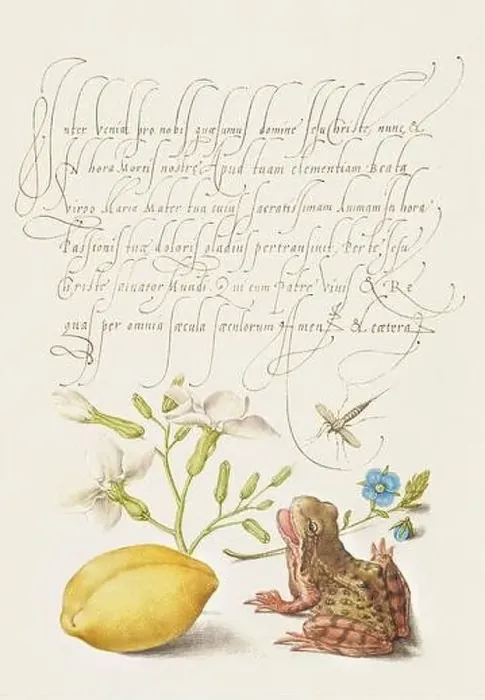 Inter Veniat pro nobis quæsumus domine Jesu Christe nunc, &
In hora Mortis nostre Apud tuam clementiam Beata
Virgo Maria Mater tua cuius sacratissimam Animam in hora
Passionis tuæ doloris gladius pertransivit, Per te Jesu
Christe salvator Mundi Qui cum Patre Vivis & Re
gnas per omnia sæcula sæculorum Amen & cætera